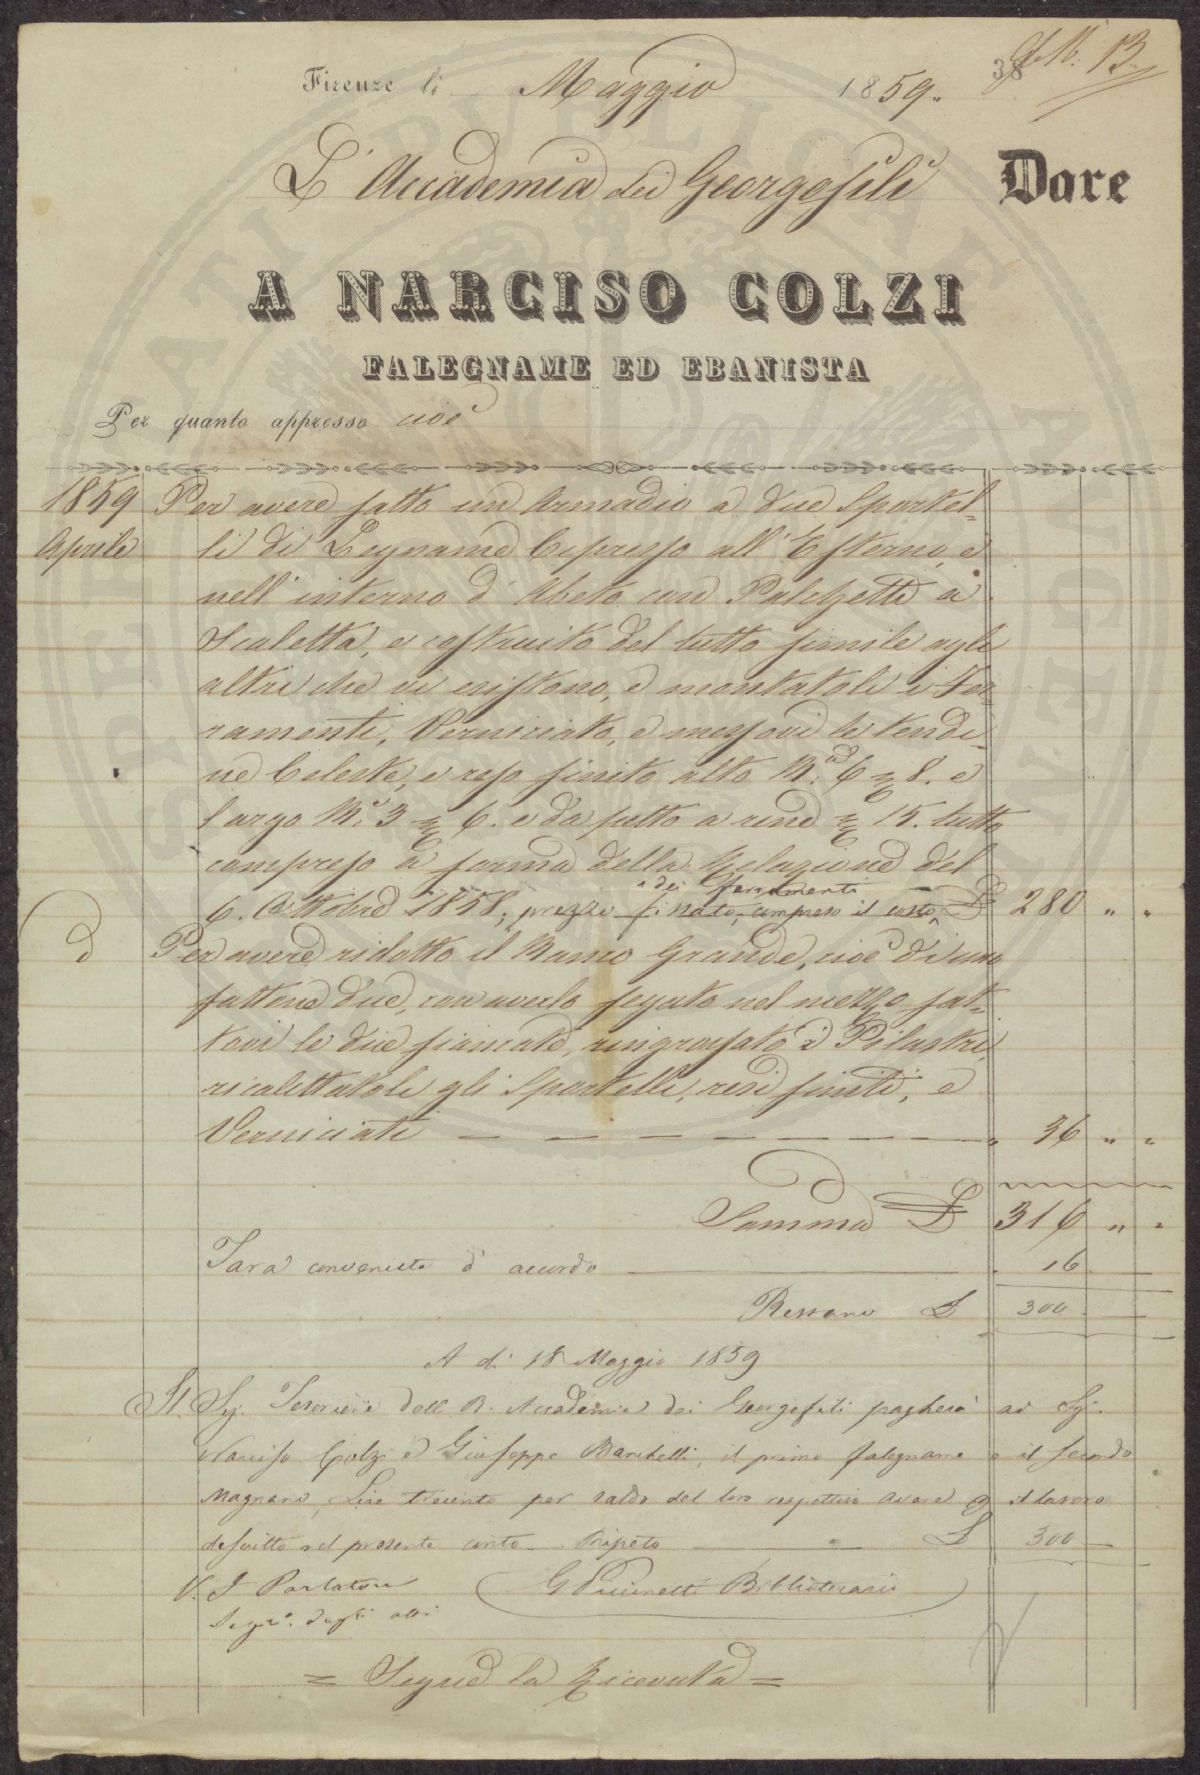 38 N. 13.
Firenze li Maggio 1859.
L'Accademia dei Georgofili Dare
A NARCISO COLZI
FALEGNAME ED EBANISTA
Per quanto appresso cioè
1859 Per avere fatto un Armadio a due Sportel-
Aprile li di Legname Cipresso all'Esterno, e
nell'interno d'Abeto con Palchetti a
Scaletta, e costruito del tutto simile agli
altri che vi esistono, e montatoli i Fer-
ramenti, Verniciato, e messovi le tendi-
ne Celeste, e reso finito alto B.a 6 8. e
largo B.a 3 6. e da sotto a 15. tutto
compreso a forma della Relazione del
dei ferramenti
6. Ottobre 1858, prezzo fissato, compreso il costo £ 280 " "
D Per avere ridotto il Banco Grande, cioè di uno
fattone due, con averlo segato nel mezzo fat-
tovi le due fiancate, ringrossato i Pilastri,
ricalettatole gli Sportelli, resi finiti, e
Verniciati — — — — — — — — " 36 " "
Somma £ 316 " "
Tara convenuta d'accordo " 16
Restano £ 300
A di 18 Maggio 1859
Il Sig. Tesoriere dell R. Accademia dei Georgofili pagherà ai Sig.
Narciso Colzi e Giuseppe Banchelli, il primo falegname e il secondo
Magnano, Lire trecento per saldo del loro respettivo avere p il lavoro
descritto nel presente conto — Ripeto — £ 300 —
V. F Parlatore G Puccinetti Bibliotecario
Segr.o degli atti
= Segue la Ricevuta =